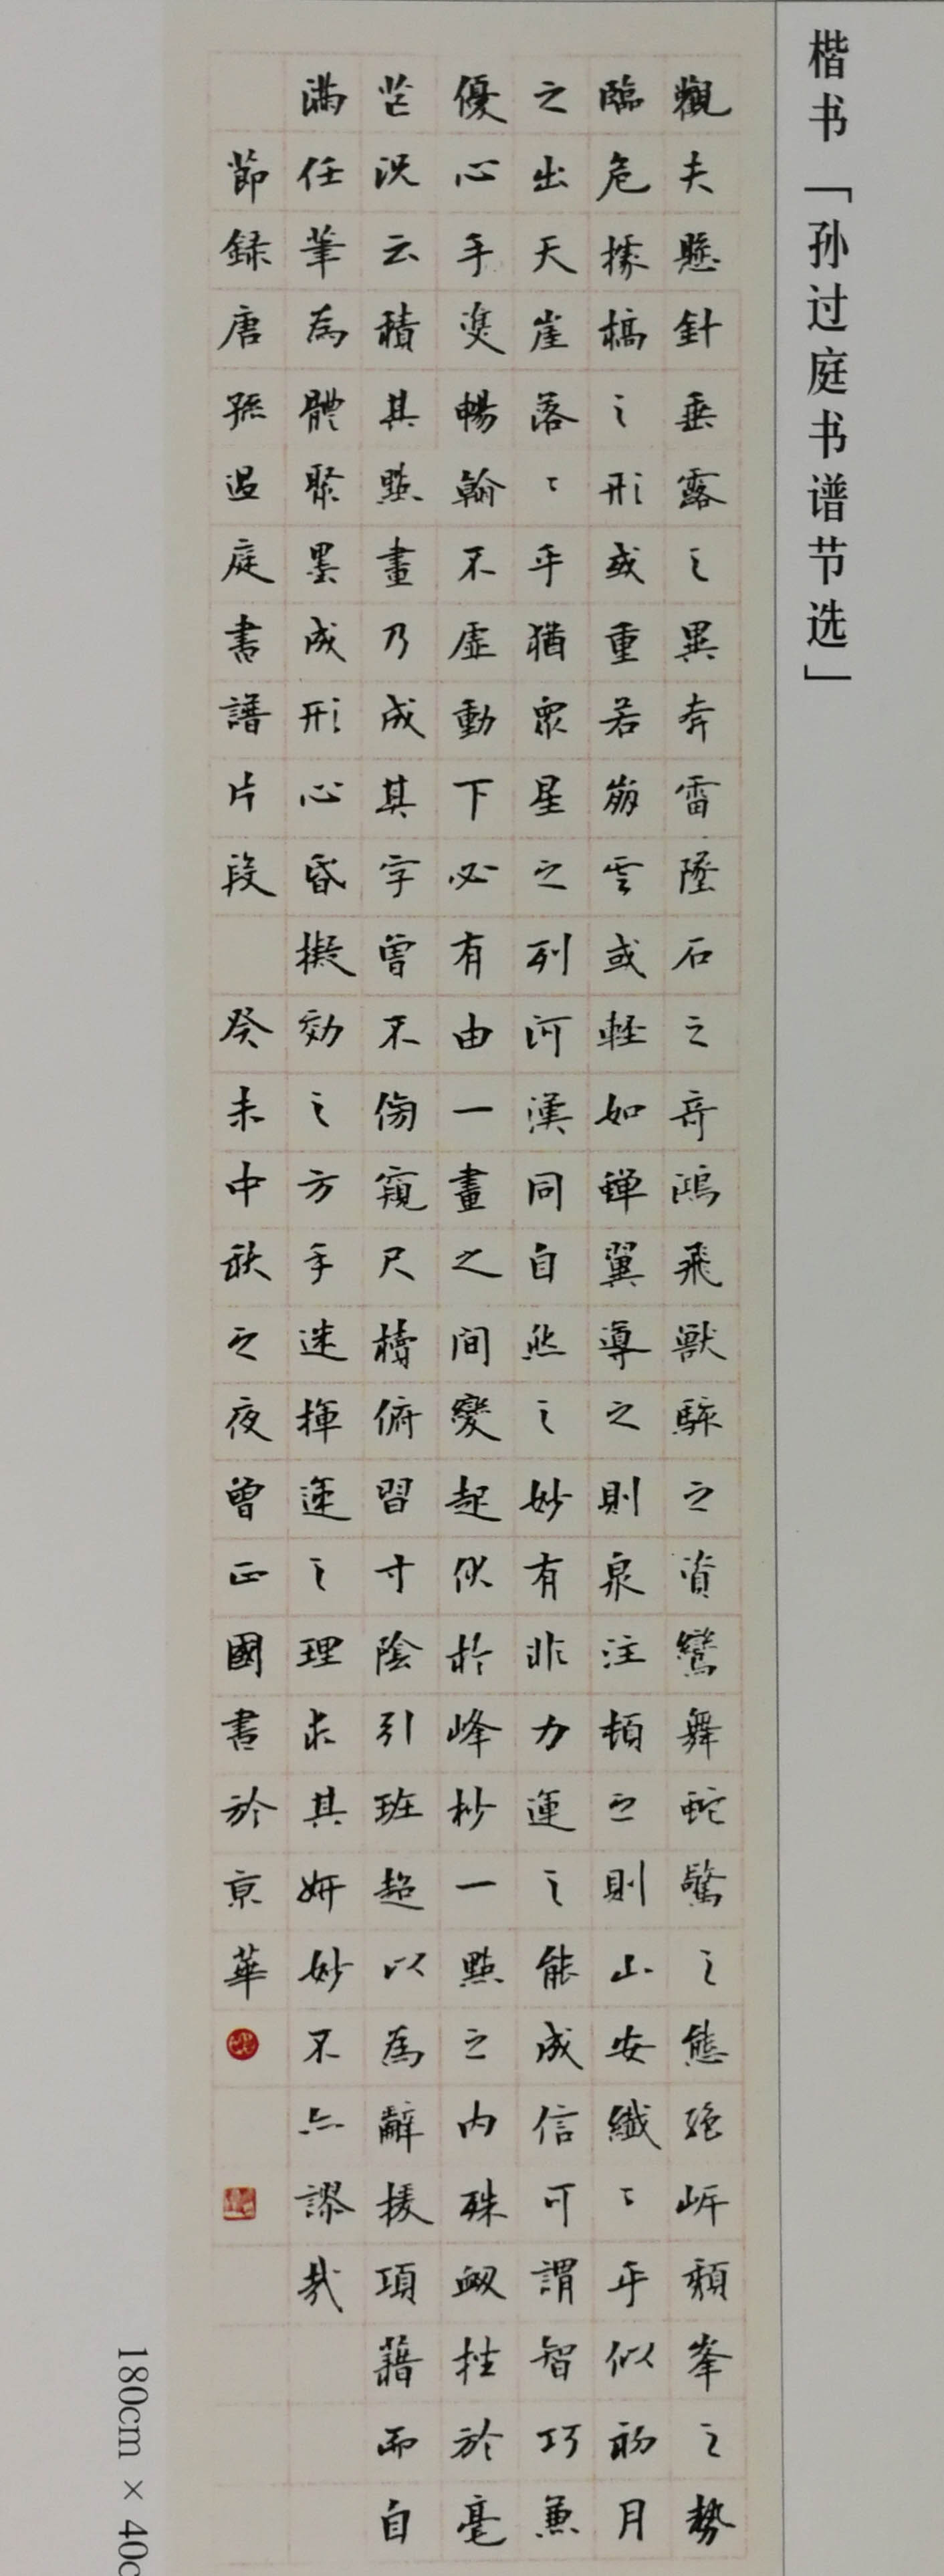 楷书「孙过庭书谱节选」
觀夫懸針垂露之異奔雷墜石之奇鴻飛獸駭之資鸞舞蛇驚之態絕岸頹峯之勢
臨危據槁之形或重若崩雲或輕如蟬翼導之則泉注頓之則山安纖〻乎似初月
之出天崖落〻乎猶眾星之列河漢同自然之妙有非力運之能成信可謂智巧兼
優心手雙暢翰不虛動下必有由一畫之間變起伏於峰杪一點之內殊衂挫於毫
芒況云積其點畫乃成其字曾不傍窺尺牘俯習寸陰引班超以為辭援項籍而自
滿任筆為體聚墨成形心昏擬効之方手迷揮運之理求其妍妙不亦謬哉
節録唐孫過庭書譜片段 癸未中秋之夜曾正國書於京華
180cm × 40c